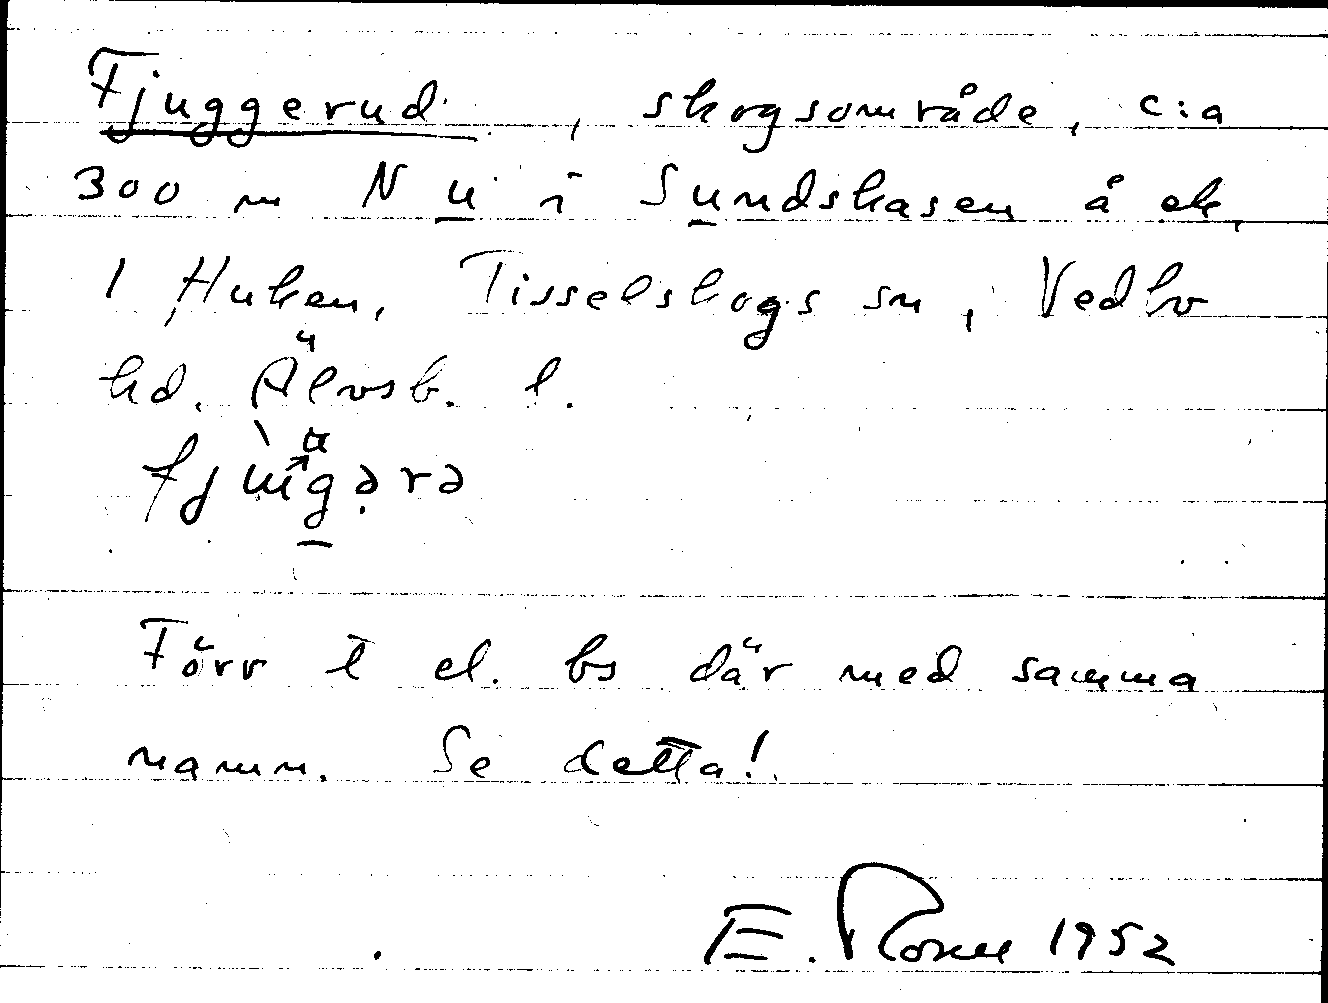 Fjuggerud, skogsområde, c:a
300 m N u i Sundskasen å ek.
1 Huken, Tisselskogs sn, Vedbo
hd. Älvsb. l.
fjùgərə
Förr t el. bs där med samma
namn. Se detta!
E. 1952